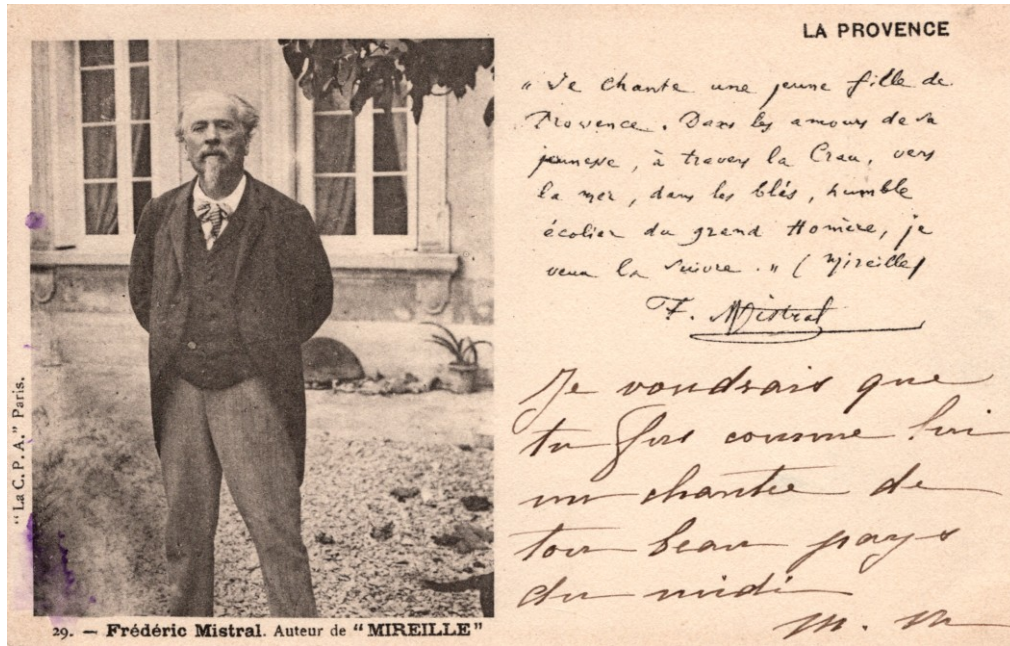 LA PROVENCE
"Je chante une jeune fille de
Provence. Dans les amours de sa
jeunesse, à travers la Crau, vers
la mer, dans les blés, humble
écolier du grand Homère, je
veux la suivre." (Mireille)
F. Mistral
Je voudrais que
tu sois comme lui
un chantre de
ton beau pays
du midi
M. M
"La C. P. A." Paris.
29. — Frédéric Mistral. Auteur de "MIREILLE"